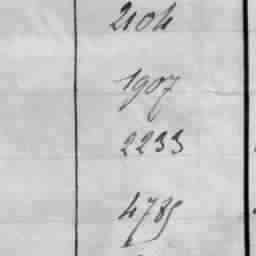 2104
1907
2233
4785